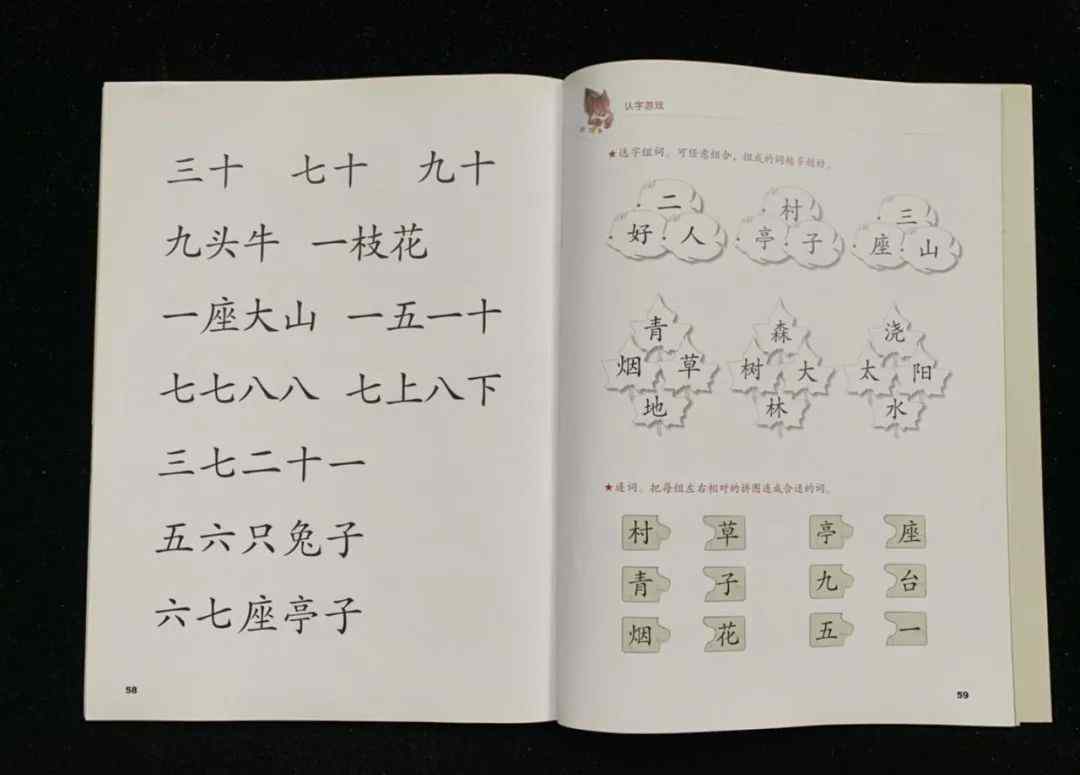 三十 七十 九十
九头牛 一枝花
一座大山 一五一十
七七八八 七上八下
三七二十一
五六只兔子
六七座亭子
58
认字游戏
★选字组词。可任意组合,组成的词越多越好。
二 村 三
好 人 亭 子 座 山
青 森 浇
烟 草 树 大 太 阳
地 林 水
★连词。把每组左右相对的拼图连成合适的词。
村 草 亭 座
青 子 九 台
烟 花 五 一
59